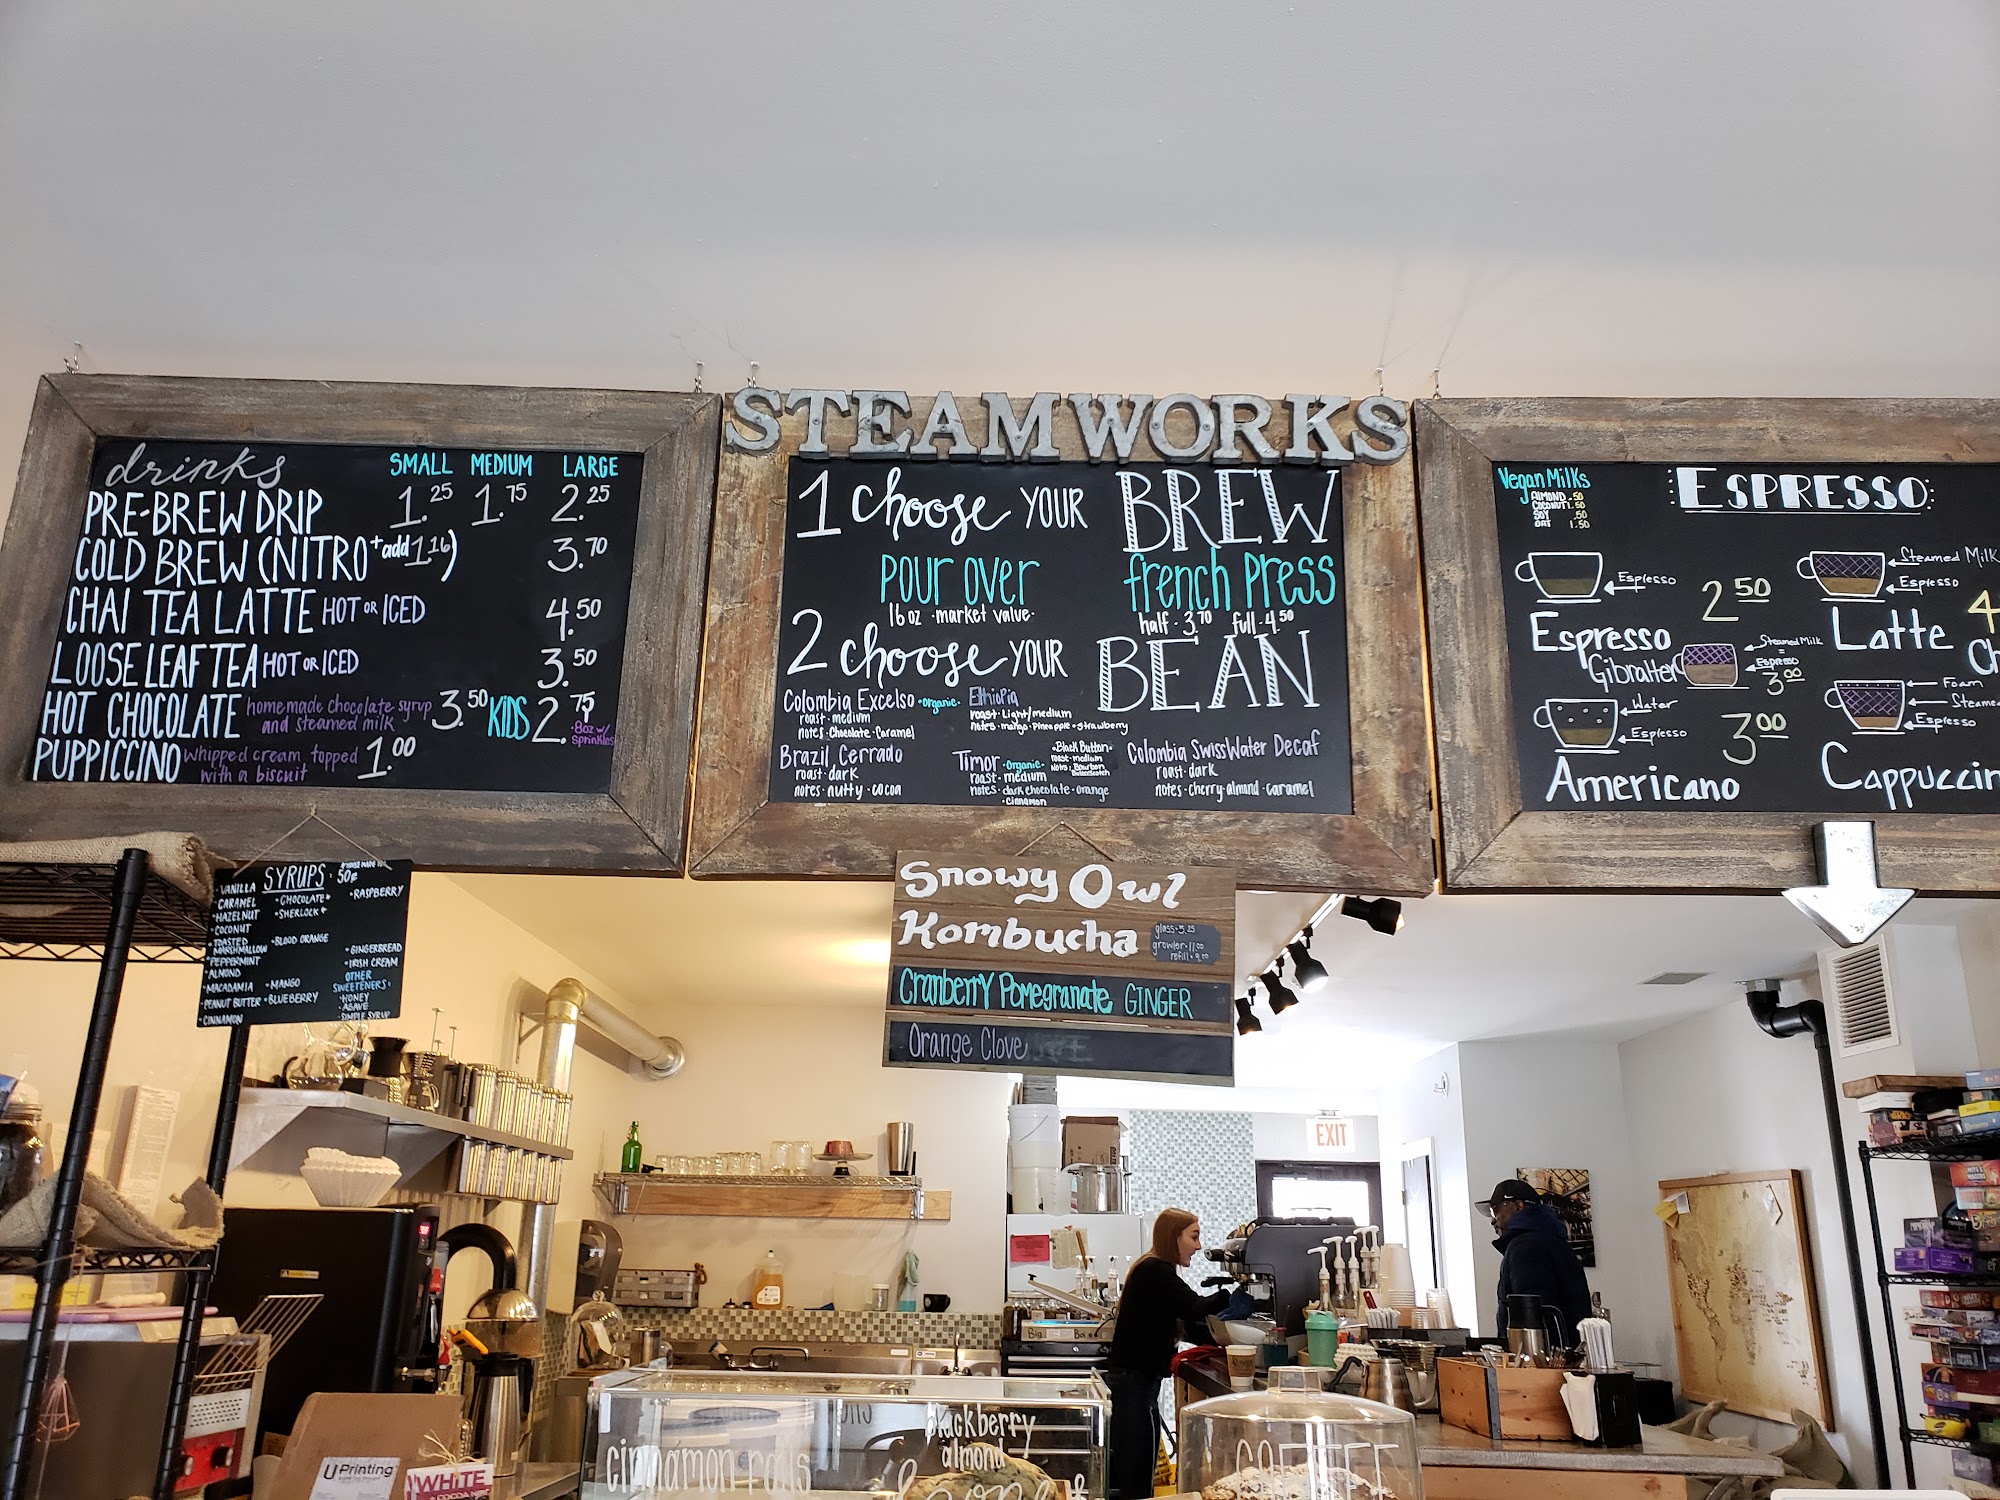 STEAMWORKS
drinks SMALL MEDIUM LARGE
PRE-BREW DRIP 1.25 1.75 2.25
COLD BREW (NITRO +add 1.16) 3.70
CHAI TEA LATTE HOT OR ICED 4.50
LOOSE LEAF TEA HOT OR ICED 3.50
HOT CHOCOLATE homemade chocolate syrup and steamed milk 3.50 KIDS 2.75 8oz w/ sprinkles
PUPPICCINO whipped cream topped with a biscuit 1.00
1 choose YOUR BREW
POUR OVER
16 oz · market value ·
french press
half · 3.70 full · 4.50
2 choose YOUR BEAN
Colombia Excelso · organic ·
roast · medium
notes · Chocolate · Caramel
Ethiopia
roast · Light/medium
notes · mango · Pineapple · strawberry
Brazil Cerrado
roast · dark
notes · nutty · cocoa
Timor · Organic ·
roast · medium
notes · dark chocolate · orange
· cinnamon
· Black Button ·
roast · medium
Notes · Bourbon
Butterscotch
Colombia SwissWater Decaf
roast · dark
notes · cherry · almond · caramel
Vegan Milks
ALMOND .50
COCONUT 1.50
SOY .50
OAT 1.50
ESPRESSO
Espresso
Espresso 2.50
Steamed Milk
Espresso
Latte 4
Ch
Steamed Milk
Espresso
Gibralter 3.00
Water
Espresso
Americano 3.00
Foam
Steame
Espresso
Cappuccin
SYRUPS · 50¢
· VANILLA
· CARAMEL
· HAZELNUT
· COCONUT
· TOASTED MARSHMALLOW
· PEPPERMINT
· ALMOND
· MACADAMIA
· PEANUT BUTTER
· CINNAMON
· CHOCOLATE *
· SHERLOCK *
· BLOOD ORANGE
· MANGO
· BLUEBERRY
· RASPBERRY
· GINGERBREAD
· IRISH CREAM
OTHER SWEETENERS:
· HONEY
· AGAVE
· SIMPLE SYRUP
Snowy Owl
Kombucha
glass · 5.25
growler · 11.00
refill · 9.00
Cranberry Pomegranate GINGER
Orange Clove
EXIT
cinnamon rolls
blackberry
almond
COFFEE
UPrinting
WHITE